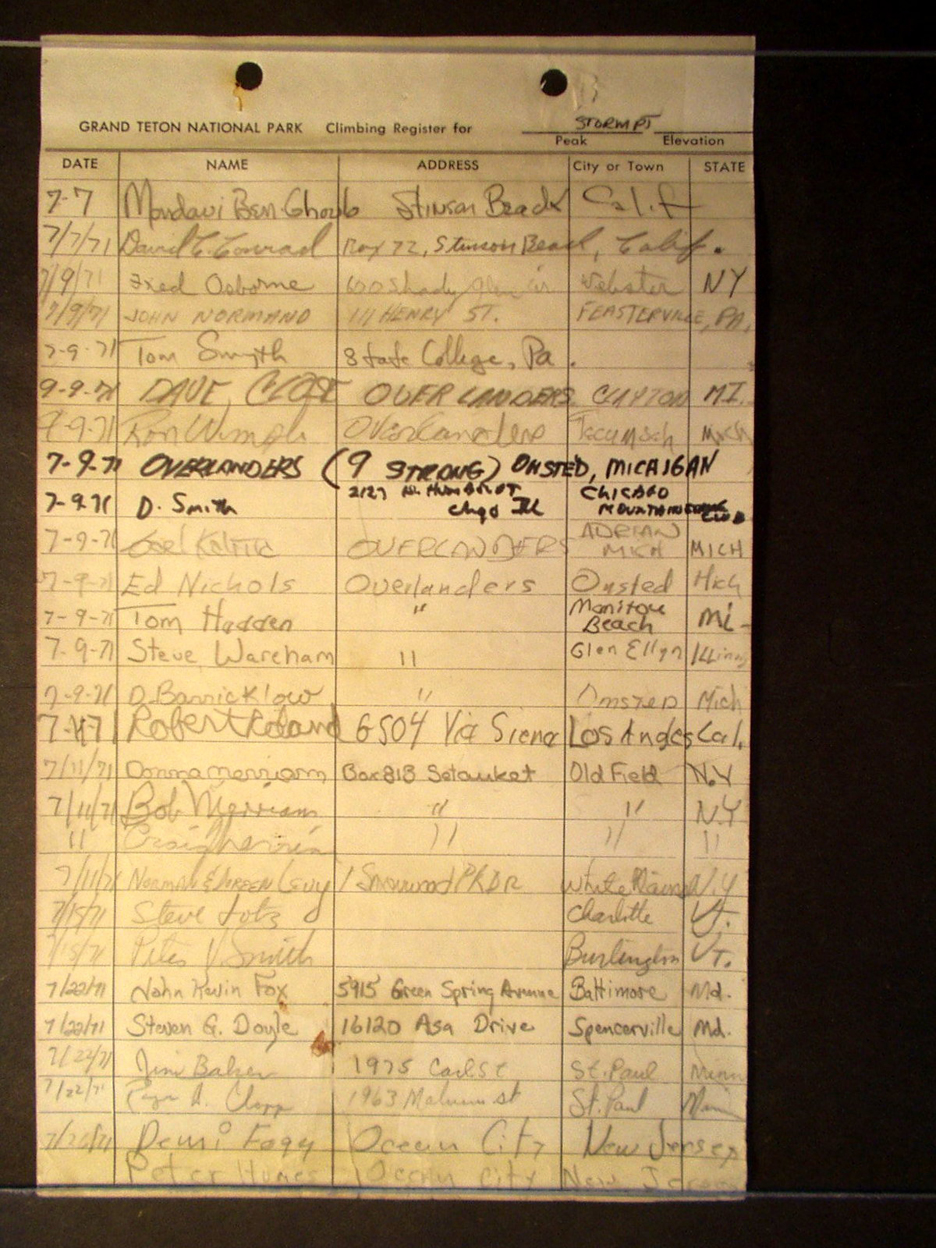 STORM PT
GRAND TETON NATIONAL PARK Climbing Register for
Peak Elevation
DATE NAME ADDRESS City or Town STATE
7-7 Ben Stinson Beach Calif
7/7/71 David C. Conrad Box 72, Stinson Beach, Calif.
7/9/71 Fred Osborne 600 Shady Webster NY
7/9/71 JOHN NORMAND 111 HENRY ST. FEASTERVILLE, PA,
7-9-71 Tom Smyth State College, Pa.
9-9-71 DAVE CLOSE OVERLANDERS CLAYTON MI.
9-9-71 Ron Overlanders Tecumseh Mich
7-9-71 OVERLANDERS (9 STRONG) ONSTED, MICAIGAN
7-9-71 D. Smith 2127 N. HUMBOLDT Chgo Ill CHICAGO MOUNTAINEERING CLUB
7-9-71 OVERLANDERS ADRIAN MICH MICH
7-9-71 Ed Nichols Overlanders Onsted Mich
7-9-71 Tom Hadden " Manitou Beach Mi-
7-9-71 Steve Wareham " Glen Ellyn Illinois
7-9-71 D. Barricklow " Onsted Mich
7-11-71 Robert Roland 6504 Via Siena Los Angeles Cal.
7/11/71 Donna Merriam Box 818 Setauket Old Field N.Y
7/11/71 Bob Merriam " " N.Y
" Craig Merriam " " "
7/11/71 NORMAN & DOREEN LEVY 1 PK DR White Plains N.Y
7/15/71 Steve Charlotte VT.
7/15/71 Peter Smith Burlington VT.
7/22/71 John Kevin Fox 5915 Green Spring Avenue Baltimore Md.
7/22/71 Steven G. Doyle 16120 Asa Drive Spencerville Md.
7/22/71 Jim Baker 1975 Carl St St. Paul Minn
7/22/71 A. 1963 st St. Paul Minn
7/26/71 Ocean City New Jersey
Peter Ocean City New Jersey